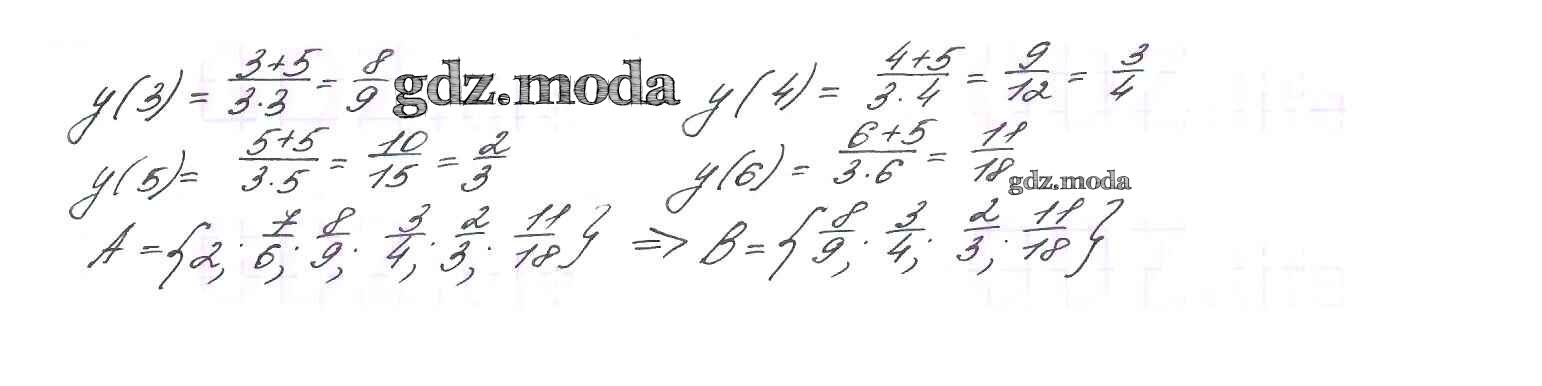 y(3) = (3+5)/(3·3) = 8/9 gdz.moda y(4) = (4+5)/(3·4) = 9/12 = 3/4
y(5) = (5+5)/(3·5) = 10/15 = 2/3 y(6) = (6+5)/(3·6) = 11/18 gdz.moda
A = {2; 7/6; 8/9; 3/4; 2/3; 11/18} => B = {8/9; 3/4; 2/3; 11/18}